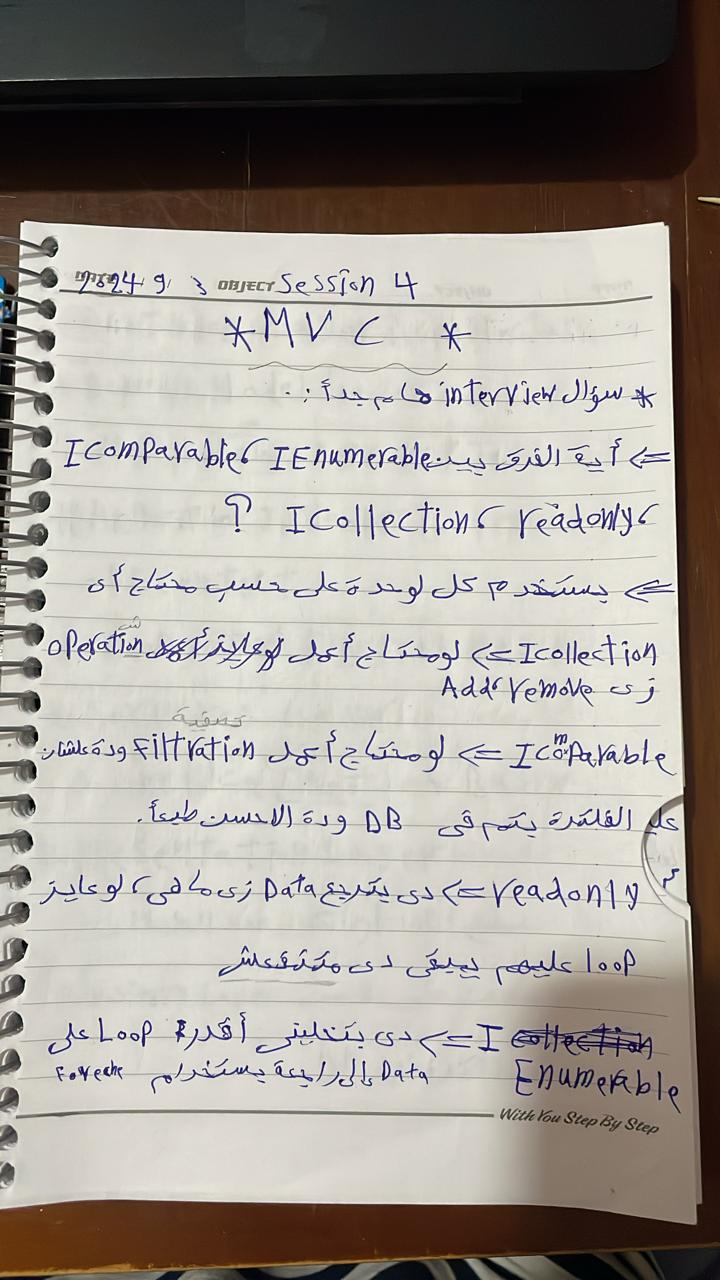 2024 9 3 OBJECT Session 4
* MVC *
* سؤال interview هام جداً :.
=> أية الفرق بين IEnumerable، IComparable
، readonly، ICollection ؟
=> يستخدم كل لوحدة على حسب محتاج أى
Icollection => لو محتاج أعمل operation
زى Add، remove
تصفية
IComparable => لو محتاج أعمل Filtration ودة علشان
الفلترة بتتم فى DB ودة الاحسن طبعاً.
readonly => دى بترجع Data زى ما هى، لو عايز
loop عليهم يبقى دى متنفعش
I => دى بتخلينى أقدر Loop على
Enumerable Data إلى راجعة بستخدام Foreche
With You Step By Step